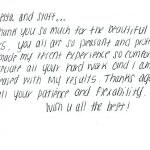 and staff...
thank you so much for the beautiful
you all are so pleasant and
made my recent experience so
all your hard work and I am
with my results. Thanks
all your patience and flexibility.
Wish u all the best!